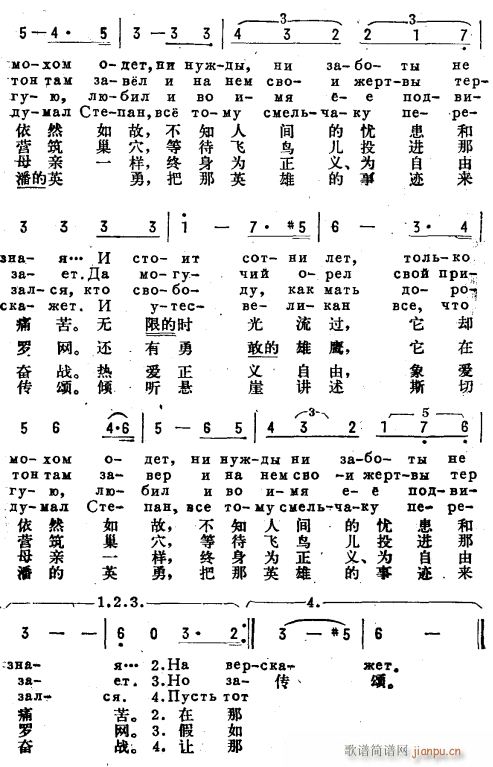 5 — 4· 5 | 3 — 3 3 | 4 3 2 2 1 7 |
мохом одет, ни нужды, ни заботы не
тон там завёл и на нем свои жертвы тер
гую, любил и во имя ее подви-
думал Степан, всё тому смельчаку пере-
依然 如故，不知人间的忧患和
营筑 巢穴，等待飞鸟儿投进那
母亲 一样，终身为正义、为自由
潘的英 勇，把那英雄的事迹来
3 3 3 3 | i — 7· #5 | 6 — 3· 4 |
зна- я… И стоит сотни лет, только
за- ет. Да могучий орел свой при-
зался, кто свободу, как мать доро-
скажет. И утес- великан все, что
痛苦。无 限的时 光 流过，它却
罗网。还 有勇 敢的雄鹰，它在
奋战。热 爱正 义 自由，象爱
传颂。倾 听悬 崖 讲述 斯切
5 6 4·6 | 5 — 5 6 5 | 4 3 2 1 7 6 |
мохом одет, ни нужды ни заботы не
тон там завер и на нем сво-и жертвы тер
гую, любил и во имя ее подви-
думал Степан, все тому смельчаку пере-
依然 如 故，不知人间的忧患和
营筑 巢 穴，等待飞鸟儿投进那
母亲 一 样，终身为正义、为自由
潘的 英 勇，把那英雄的事迹来
1.2.3. 4.
3 — — | 6 0 3· 2 :‖ 3 — #5 | 6 — — ‖
зна- я… 2. На верска- жет.
за- ет. 3. Но за- 传 颂。
зал- ся. 4. Пусть тот
痛 苦。2. 在 那
罗 网。3. 假 如
奋 战。4. 让 那
歌谱简谱网
jianpu.cn